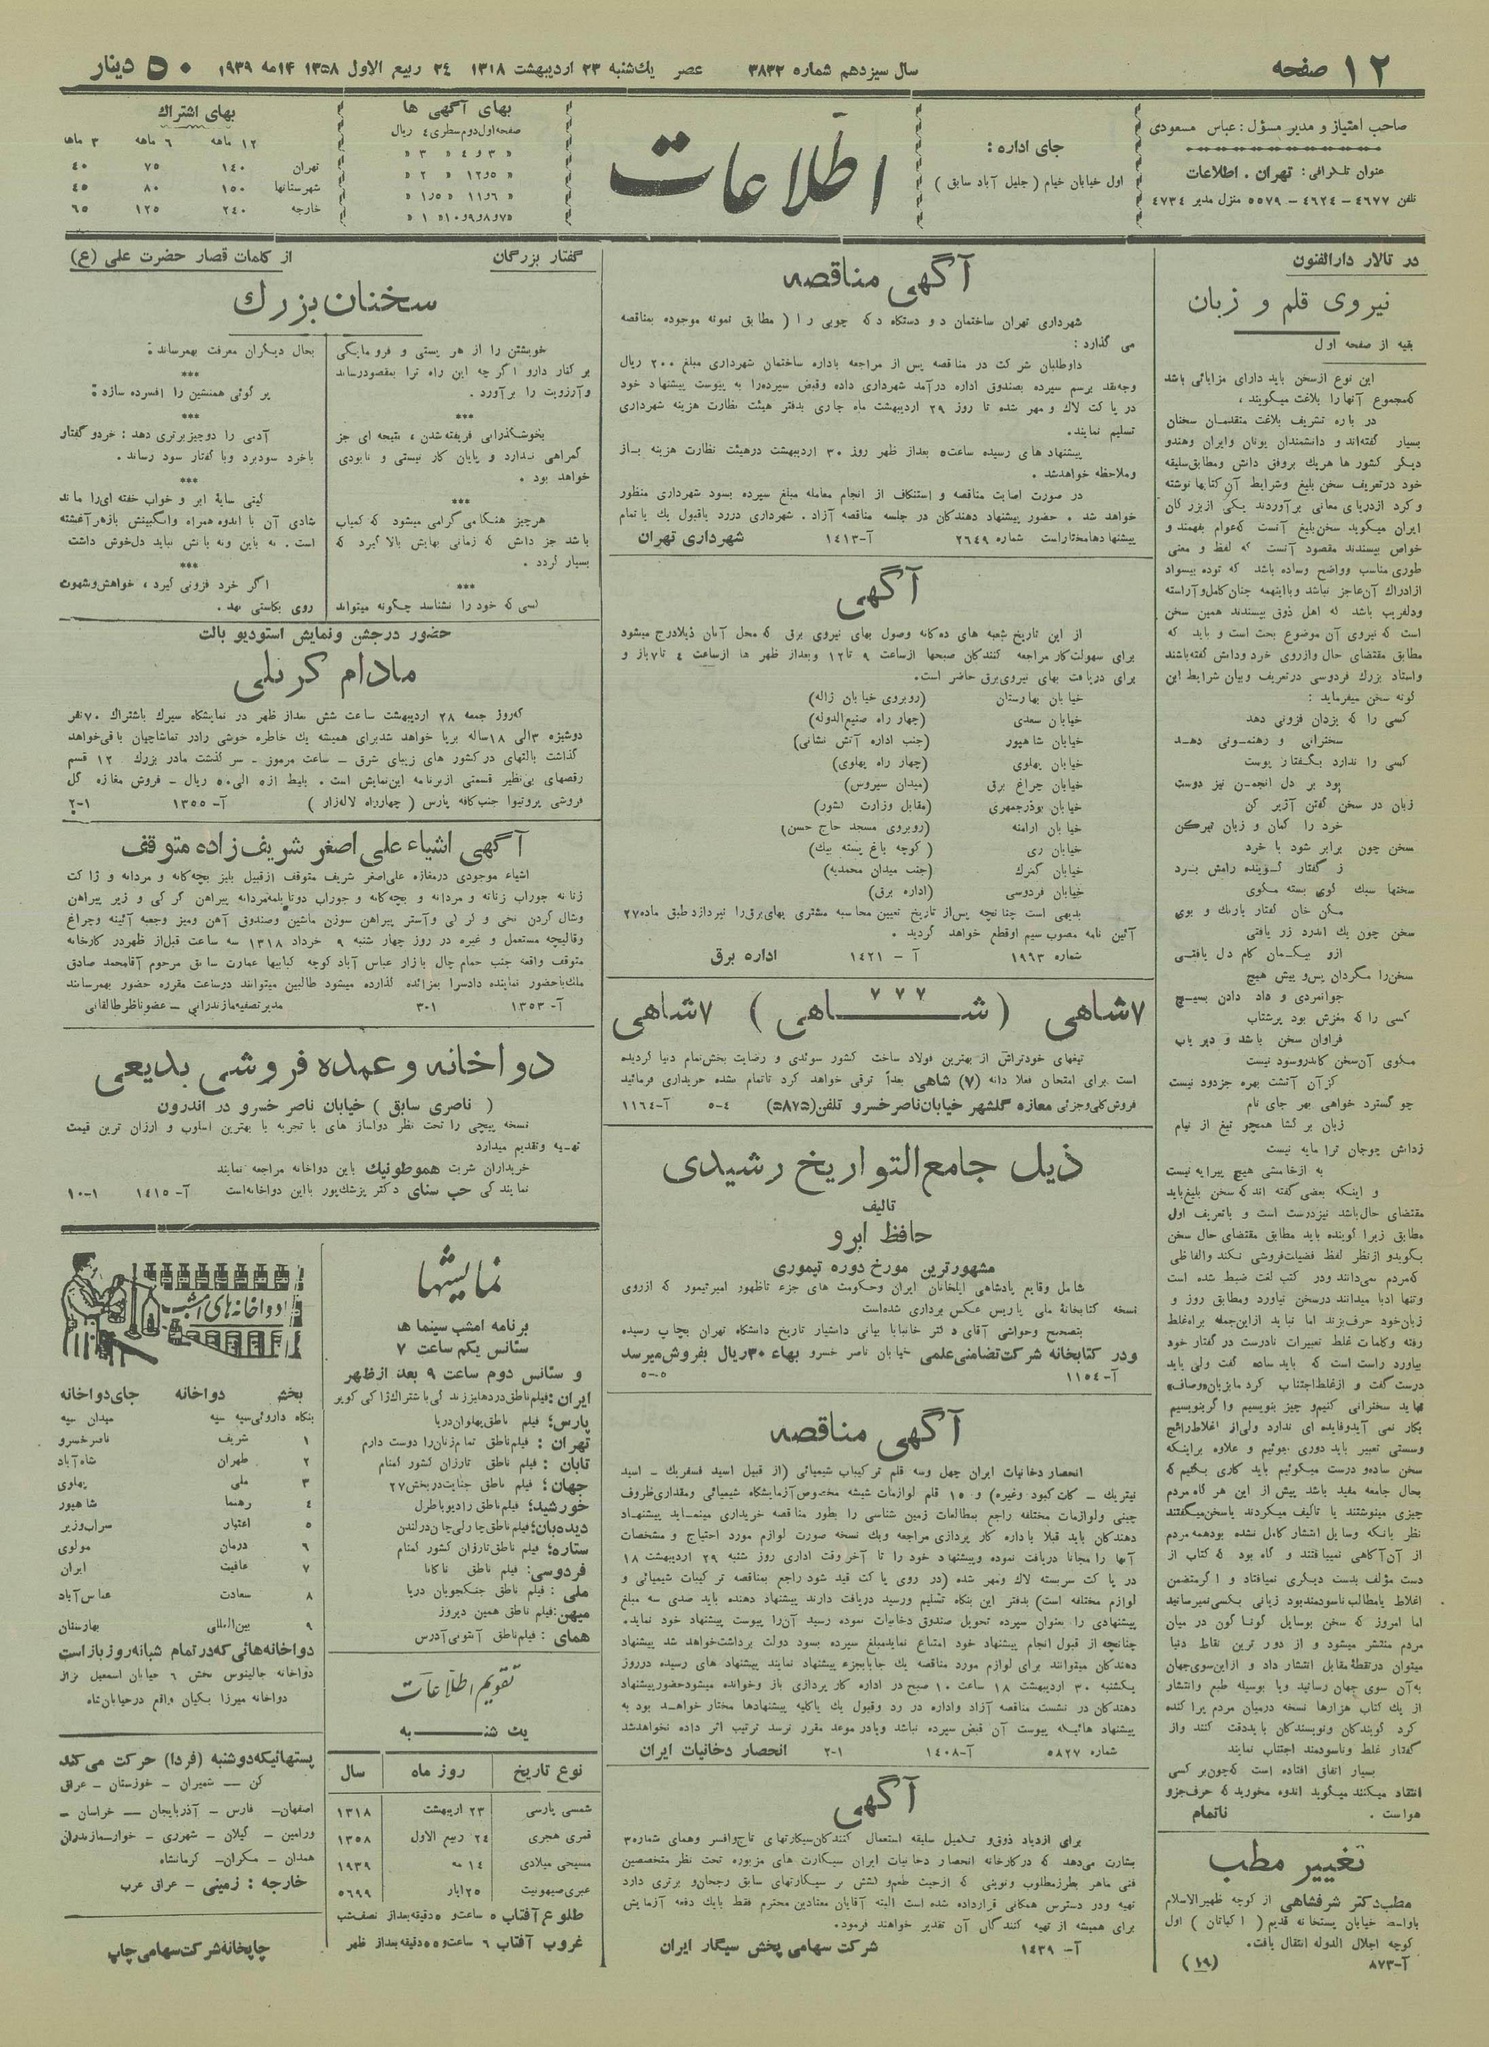 ۱۲ صفحه
سال سیزدهم شماره ۳۸۳۲
عصر یك‌شنبه ۲۳ اردیبهشت ۱۳۱۸
۲۴ ربیع الاول ۱۳۵۸
۱۴مه ۱۹۳۹
۵۰ دینار
صاحب امتیاز و مدیر مسؤل : عباس مسعودی
عنوان تلگرافی: تهران . اطلاعات
تلفن ۴۶۷۷ – ۴۶۲۴ – ۵۵۷۹ منزل مدیر ۴۷۳۴
جای اداره :
اول خیابان خیام ( جلیل آباد سابق )
اطلاعات
بهای آگهی ها
صفحه‌اول‌دوم‌سطری ۴ ریال
« ۳و۴ « ۳ «
« ۵و۱۲ « ۲ «
« ۶و۱۱ « ۱٫۵ «
«۷و۸و۹و۱۰ « ۱ «
بهای اشتراك
۱۲ ماهه ۶ ماهه ۳ ماهه
تهران ۱۴۰ ۷۵ ۴۰
شهرستانها ۱۵۰ ۸۰ ۴۵
خارجه ۲۴۰ ۱۲۵ ۶۵
در تالار دارالفنون
نیروی قلم و زبان
بقیه از صفحه اول
این نوع ازسخن باید دارای مزایائی باشد
که‌مجموع آنها را بلاغت میگویند ،
در باره تشریف بلاغت متقدمان سخنان
بسیار گفته‌اند و دانشمندان یونان وایران وهندو
دیگر کشور ها هریك بروفق دانش ومطابق‌سلیقه
خود درتعریف سخن بلیغ وشرایط آن‌کتابها نوشته
و کرد ازدریای معانی برآوردند یکی ازبزرگان
ایران میگوید سخن‌بلیغ آنست که‌عوام بفهمند و
خواص بپسندند مقصود آنست که لفظ و معنی
طوری مناسب وواضح وساده باشد که توده بیسواد
ازادراك آن‌عاجز نباشد وبااینهمه چنان‌کامل‌وآراسته
ودلفریب باشد که اهل ذوق بپسندند همین سخن
است که نیروی آن موضوع بحث است و باید که
مطابق مقتضای حال وازروی خرد ودانش گفته‌باشند
واستاد بزرك فردوسی درتعریف وبیان شرایط این
گونه سخن میفرماید :
کسی را که یزدان فزونی دهد
سخنرانی و رهنمونی دهد
کسی را ندارد بگفتار پوست
بود بر دل انجمن نیز دوست
زبان در سخن گفتن آژیر کن
خرد را کمان و زبان تیرکن
سخن چون برابر شود با خرد
ز گفتار گوینده رامش برد
سخنها سبك گوی بسته مگوی
مکن خان گفتار باریك و بوی
سخن چون یك اندرد زر یافتی
ازو بیگمان کام دل یافتی
سخن‌را مگردان پس‌و پیش هیچ
جوانمردی و داد دادن بسیچ
کسی را که مغزش بود پرشتاب
فراوان سخن باشد و دیر یاب
مگوی آن‌سخن کاندروسود نیست
کزآن آتشت بهره جزدود نیست
چو گسترد خواهی بهر جای نام
زبان بر کشا همچو تیغ از نیام
زدانش چوجان ترا مایه نیست
به ازخامشی هیچ پیرایه نیست
و اینکه بعضی گفته اند که سخن بلیغ‌باید
مقتضای حال‌باشد نیزدرست است و باتعریف اول
مطابق زیرا گوینده باید مطابق مقتضای حال سخن
بگویدو ازنظر لفظ فضیلت‌فروشی نکند والفاظی
که‌مردم نمی‌دانند ودر کتب لغت ضبط شده است
وتنها ادبا میدانند درسخن نیاورد ومطابق روز و
زبان‌خود حرف‌بزند اما نباید ازاین‌جمله براه‌غلط
رفته وکلمات غلط تعبیرات نادرست در گفتار خود
بیاورد راست است که باید ساده گفت ولی باید
درست گفت و ازغلط‌اجتناب کرد مابزبان«وصاف»
نباید سخنرانی کنیم‌و چیز بنویسیم واگربنویسیم
بکار نمی آیدوفایده ای ندارد ولی‌از اغلاط‌رائج
وسستی تعبیر باید دوری جوئیم و علاوه براینکه
سخن ساده‌و درست میگوئیم باید کاری بکنیم که
بحال جامعه مفید باشد پیش از این هر گاه مردم
چیزی مینوشتند یا تالیف میکردند یاسخن‌میگفتند
نظر باینکه وسایل انتشار کامل نشده بودهمه مردم
از آن‌آگاهی نمییافتند و گاه بود که کتاب از
دست مؤلف بدست دیگری نمیافتاد و اگرمتضمن
اغلاط یامطالب ناسودمندبود زیانی بکسی‌نمیرسانید
اما امروز که سخن بوسایل گوناگون در میان
مردم منتشر میشود و از دور ترین نقاط دنیا
میتوان درنقطهٔ مقابل انتشار داد و ازاین‌سوی‌جهان
به‌آن سوی جهان رسانید ویا بوسیله طبع وانتشار
از یك کتاب هزارها نسخه درمیان مردم پراکنده
کرد گویندگان ونویسندگان بایددقت کنند واز
گفتار غلط وناسودمند اجتناب نمایند
بسیار اتفاق افتاده است که‌چون‌بر کسی
انتقاد میکنند میگوید اندوه مخورید که حرف‌جزو
هواست . ناتمام
تغییر مطب
مطب‌دکتر شرفشاهی از کوچه ظهیرالاسلام
باواسط خیابان پستخانه قدیم ( اکباتان ) اول
کوچه اجلال الدوله انتقال یافت.
آ-۸۷۳ (۱۹)
آگهی مناقصه
شهرداری تهران ساختمان دو دستگاه دکه چوبی را ( مطابق نمونه موجوده بمناقصه
می گذارد :
داوطلبان شرکت در مناقصه پس از مراجعه باداره ساختمان شهرداری مبلغ ۲۰۰ ریال
وجه‌نقد برسم سپرده بصندوق اداره درآمد شهرداری داده وقبض سپرده‌را به پیوست پیشنهاد خود
در پاکت لاك و مهر شده تا روز ۲۹ اردیبهشت ماه جاری بدفتر هیئت نظارت هزینه شهرداری
تسلیم نمایند.
پیشنهاد های رسیده ساعت۵ بعداز ظهر روز ۳۰ اردیبهشت درهیئت نظارت هزینه باز
وملاحظه خواهدشد.
در صورت اصابت مناقصه و استنکاف از انجام معامله مبلغ سپرده بسود شهرداری منظور
خواهد شد . حضور پیشنهاد دهندگان در جلسه مناقصه آزاد . شهرداری دررد یاقبول یك یاتمام
پیشنهادها مختاراست شماره ۲۶۴۹ آ-۱۴۱۳ شهرداری تهران
آگهی
از این تاریخ شعبه های ده‌گانه وصول بهای نیروی برق که محل آنان ذیلادرج میشود
برای سهولت‌کار مراجعه کنندگان صبحها ازساعت ۹ تا۱۲ وبعداز ظهر ها ازساعت ۴ تا۷باز و
برای دریافت بهای نیروی‌برق حاضر است.
خیابان بهارستان (روبروی خیابان ژاله)
خیابان سعدی (چهار راه صنیع‌الدوله)
خیابان شاهپور (جنب اداره آتش نشانی)
خیابان پهلوی (چهار راه پهلوی)
خیابان چراغ برق (میدان سیروس)
خیابان بوذرجمهری (مقابل وزارت کشور)
خیابان ارامنه (روبروی مسجد حاج حسن)
خیابان ری ( کوچه باغ پسته بیك)
خیابان گمرك (جنب میدان محمدیه)
خیابان فردوسی (اداره برق)
بدیهی است چنانچه پس‌از تاریخ تعیین محاسبه مشتری بهای‌برق‌را نپردازد طبق ماده۲۷
آئین نامه مصوب سیم اوقطع خواهد گردید .
شماره ۱۹۶۳ آ – ۱۴۲۱ اداره برق
۷شاهی ( ۷۷۷ شاهی ) ۷شاهی
تیغهای خودتراش از بهترین فولاد ساخت کشور سوئدی و رضایت بخش‌تمام دنیا گردیده
است برای امتحان فعلا دانه (۷) شاهی بعداً ترقی خواهد کرد تاتمام نشده خریداری فرمائید
فروش‌کلی‌وجزئی مغازه گلشهر خیابان‌ناصرخسرو تلفن(۵۸۷۵) ۴-۵ آ-۱۱۶۴
ذیل جامع‌التواریخ رشیدی
تالیف
حافظ ابرو
مشهورترین مورخ دوره تیموری
شامل وقایع پادشاهی ایلخانان ایران وحکومت های جزء تاظهور امیرتیمور که ازروی
نسخه کتابخانهٔ ملی پاریس عکس برداری شده‌است
بتصحیح وحواشی آقای دکتر خانبابا بیانی دانشیار تاریخ دانشگاه تهران بچاپ رسیده
ودر کتابخانه شرکت‌تضامنی‌علمی خیابان ناصر خسرو بهاء ۳۰ریال بفروش‌میرسد
آ-۱۱۵۴ ۵-۵
آگهی مناقصه
انحصار دخانیات ایران چهل وسه قلم ترکیبات شیمیائی (از قبیل اسید فسفریك – اسید
نیتریك – کات‌کبود وغیره) و ۱۵ قلم لوازمات شیشه مخصوص‌آزمایشگاه شیمیائی ومقداری‌ظروف
چینی ولوازمات مختلفه راجع بمطالعات زمین شناسی را بطور مناقصه خریداری مینماید پیشنهاد
دهندگان باید قبلا باداره کار پردازی مراجعه ویك نسخه صورت لوازم مورد احتیاج و مشخصات
آنها را مجانا دریافت نموده وپیشنهاد خود را تا آخروقت اداری روز شنبه ۲۹ اردیبهشت ۱۸
در پاکت سربسته لاك ومهر شده (در روی پاکت قید شود راجع بمناقصه ترکیبات شیمیائی و
لوازم مختلفه است) بدفتر این بنگاه تسلیم ورسید دریافت دارند پیشنهاد دهنده باید صدی سه مبلغ
پیشنهادی را بعنوان سپرده تحویل صندوق دخانیات نموده رسید آن‌را پیوست پیشنهاد خود نماید.
چنانچه از قبول انجام پیشنهاد خود امتناع نمایدمبلغ سپرده بسود دولت برداشت‌خواهد شد پیشنهاد
دهندگان میتوانند برای لوازم مورد مناقصه یك جایاجزء پیشنهاد نمایند پیشنهاد های رسیده درروز
یکشنبه ۳۰ اردیبهشت ۱۸ ساعت ۱۰ صبح در اداره کار پردازی باز وخوانده میشودحضورپیشنهاد
دهندگان در نشست مناقصه آزاد واداره در رد وقبول یك یاکلیه پیشنهادها مختار خواهد بود به
پیشنهاد هائیکه پیوست آن قبض سپرده نباشد ویادر موعد مقرر نرسد ترتیب اثر داده نخواهدشد
شماره ۵۸۲۷ آ-۱۴۰۸ ۱-۲ انحصار دخانیات ایران
آگهی
برای ازدیاد ذوق‌و تکمیل سلیقه استعمال کنندگان‌سیگارتهای تاج‌وافسر وهمای شماره۳
بشارت می‌دهد که درکارخانه انحصار دخانیات ایران سیگارت های مزبوره تحت نظر متخصصین
فنی ماهر بطرزمطلوب ونوینی که ازحیث طعم‌و کشش بر سیگارتهای سابق رجحان‌و برتری دارد
تهیه ودر دسترس همگانی قرارداده شده است البته آقایان معتادین محترم فقط بایك دفعه آزمایش
برای همیشه از تهیه کنندگان آن تقدیر خواهند فرمود.
آ- ۱۴۳۹ شرکت سهامی پخش سیگار ایران
گفتار بزرگان
از کلمات قصار حضرت علی (ع)
سخنان‌بزرك
خویشتن را از هر پستی و فرومایگی
برکنار دارو اگر چه این راه ترا بمقصودرساند
وآرزویت را برآورد.
***
بخوشگذرانی فریفته‌شدن ، نتیجه ای جز
گمراهی ندارد و پایان کار نیستی و نابودی
خواهد بود .
***
هرچیز هنگامی گرامی میشود که کمیاب
باشد جز دانش که زمانی بهایش بالا گیرد که
بسیار گردد .
***
کسی که خود را نشناسد چگونه میتواند
بحال دیگران معرفت بهمرساند؛
***
پر گوئی همنشین را افسرده سازد :
***
آدمی را دوچیزبرتری دهد : خردو گفتار
باخرد سودبرد وبا گفتار سود رساند.
***
گیتی سایهٔ ابر و خواب خفته ای‌را ماند
شادی آن با اندوه همراه وانگبینش بازهرآغشته
است . نه باین ونه بآنش نباید دل‌خوش داشت
***
اگر خرد فزونی گیرد ، خواهش‌وشهوت
روی بکاستی نهد.
حضور درجشن ونمایش استودیو بالت
مادام کرنلی
که‌روز جمعه ۲۸ اردیبهشت ساعت شش بعداز ظهر در نمایشگاه سیرك باشتراك ۷۰نفر
دوشیزه ۳الی ۱۸ساله برپا خواهد شدبرای همیشه یك خاطره خوشی رادر تماشاچیان باقی‌خواهد
گذاشت بالتهای درکشور های زیبای شرق – ساعت مرموز – سر گذشت مادر بزرك ۱۲ قسم
رقصهای بی‌نظیر قسمتی ازبرنامه این‌نمایش است . بلیط از۵ الی۵۰ ریال – فروش مغازه گل
فروشی پروتیوا جنب‌کافه پارس ( چهارراه لاله‌زار ) آ- ۱۳۵۵ ۱-۲
آگهی اشیاء علی اصغر شریف‌زاده متوقف
اشیاء موجودی درمغازه علی‌اصغر شریف متوقف ازقبیل بلیز بچه‌گانه و مردانه و ژاکت
زنانه و جوراب زنانه و مردانه و بچه‌گانه و جوراب دوتاپلمه‌مردانه پیراهن کرکی و زیر پیراهن
وشال گردن نخی و کرکی وآستر پیراهن سوزن ماشین وصندوق آهن ومیز وجعبه آئینه وچراغ
وقالیچه مستعمل و غیره در روز چهار شنبه ۹ خرداد ۱۳۱۸ سه ساعت قبل‌از ظهردر کارخانه
متوقف واقعه جنب حمام چال بازار عباس آباد کوچه کبابیها عمارت سابق مرحوم آقامحمد صادق
ملك‌باحضور نماینده دادسرا بمزائده گذارده میشود طالبین میتوانند درساعت مقرره حضور بهمرسانند
آ-۱۳۵۳ ۳۰۱ مدیرتصفیه‌مازندرانی – عضوناظرطالقانی
دواخانه وعمده فروشی بدیعی
( ناصری سابق ) خیابان ناصر خسرو در اندرون
نسخه پیچی را تحت نظر دواساز های با تجربه با بهترین اسلوب و ارزان ترین قیمت
تهیه وتقدیم میدارد
خریداران شربت هموطونیك باین دواخانه مراجعه نمایند
نمایندگی حب سنای دکتر پزشك‌پور بااین دواخانه‌است آ-۱۴۱۵ ۱-۱۰
نمایشها
برنامه امشب سینما ها
سئانس یکم ساعت ۷
و سئانس دوم ساعت ۹ بعد ازظهر
ایران: فیلم‌ناطق‌دردهلیززندگی‌باشتراك‌ژاکی کوپر
پارس؛ فیلم ناطق‌پهلوان‌دریا
تهران : فیلم‌ناطق تمام‌زنان‌را دوست دارم
تابان : فیلم ناطق تارزان کشور گمنام
جهان؛ فیلم ناطق جنایت‌دربخش۲۷
خورشید؛ فیلم‌ناطق رادیوپاطرل
دیده‌بان؛ فیلم‌ناطق‌چارلی‌چان‌درلندن
ستاره؛ فیلم ناطق‌تارزان کشور گمنام
فردوسی: فیلم ناطق ناکانا
ملی : فیلم ناطق جنگجویان دریا
میهن:فیلم ناطق همین دیروز
همای : فیلم‌ناطق آنتونی‌آدرس
تقویم اطلاعات
یك شنبه
نوع تاریخ روز ماه سال
شمسی پارسی ۲۳ اردیبهشت ۱۳۱۸
قمری هجری ۲۴ ربیع الاول ۱۳۵۸
مسیحی میلادی ۱۴ مه ۱۹۳۹
عبری‌صیهونیت ۲۵ایار ۵۶۹۹
طلوع آفتاب ۵ ساعت‌و ۵ دقیقه‌بعداز نصف‌شب
غروب آفتاب ۶ ساعت‌و۵۵دقیقه‌بعداز ظهر
دواخانه‌های امشب
بخش دواخانه جای‌دواخانه
بنگاه داروئی‌سپه سپه میدان سپه
۱ شریف ناصرخسرو
۲ طهران شاه‌آباد
۳ ملی پهلوی
۴ رهنما شاهپور
۵ اعتبار سراب‌وزیر
۶ درمان مولوی
۷ عافیت ایران
۸ سعادت عباس‌آباد
۹ بین‌المللی بهارستان
دواخانه‌هائی که‌درتمام شبانه‌روزبازاست
دواخانه جالینوس بخش ۶ خیابان اسمعیل بزاز
دواخانه میرزا یکیان واقع درخیابان‌شاه
پستهائیکه‌دوشنبه (فردا) حرکت می‌کند
کن – شمیران – خوزستان – عراق
اصفهان– فارس – آذربایجان – خراسان –
ورامین – گیلان – شهرری – خوار–مازندران
همدان – مکران– کرمانشاه
خارجه : زمینی – عراق عرب
چاپخانه‌شرکت‌سهامی‌چاپ